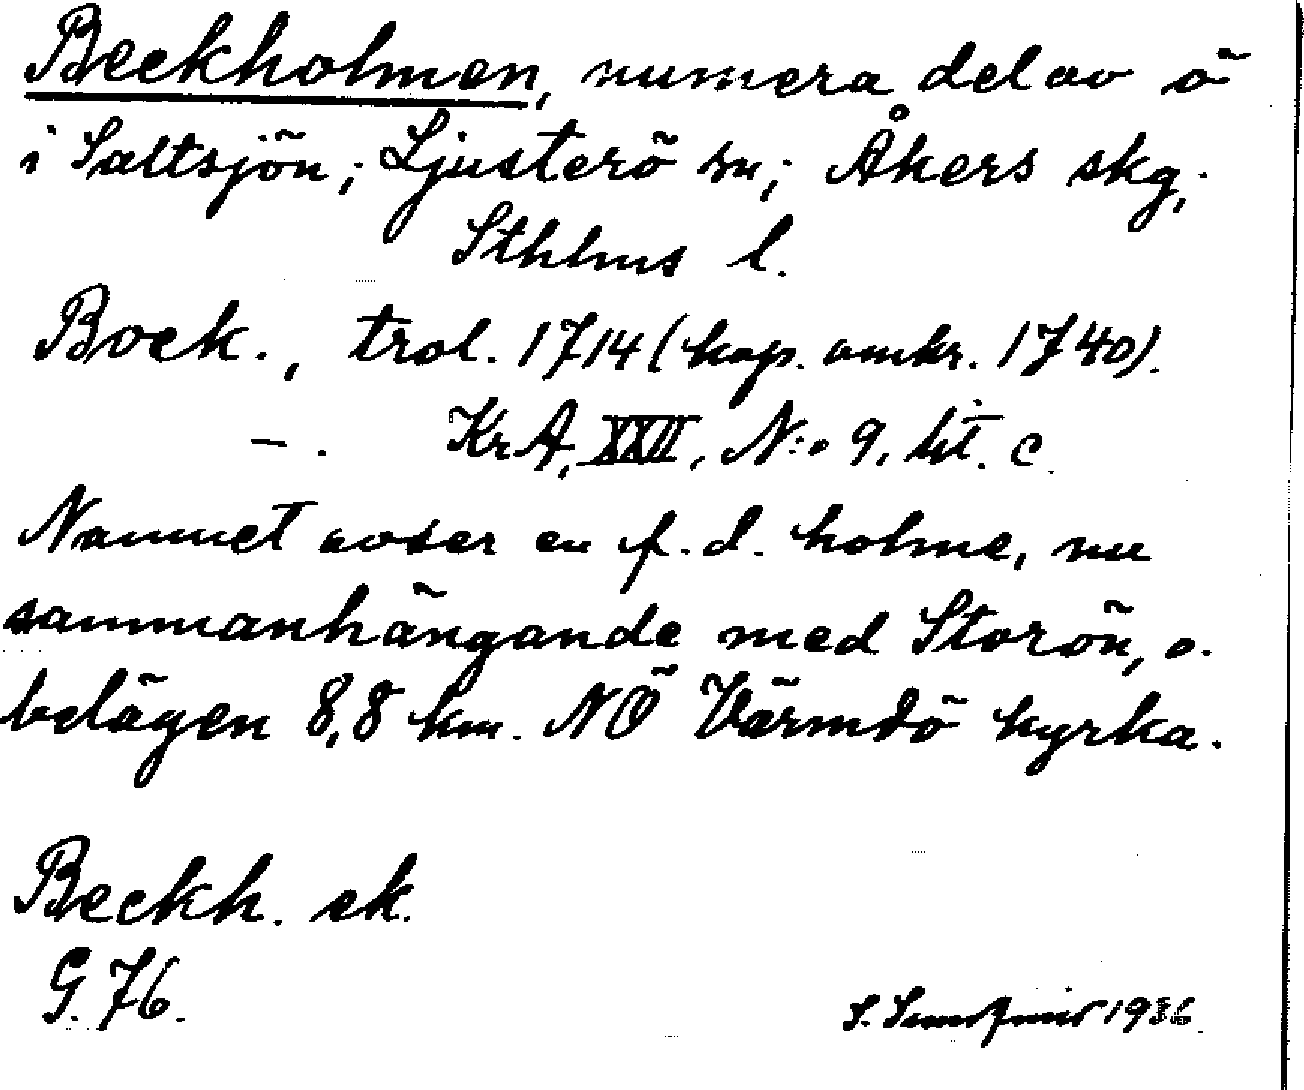 Beckholmen, numera del av ö
i Saltsjön; Ljusterö sn; Åkers skg,
Sthlms l.
Bock., trol. 1714 (kop. omkr. 1740).
—. KrA, XXII, N:o 9, lit. c.
Namnet avser en f.d. holme, nu
sammanhängande med Storön, o.
belägen 8,8 km. NÖ Värmdö kyrka.
Beckh. ek.
G. 76.
S. 1936